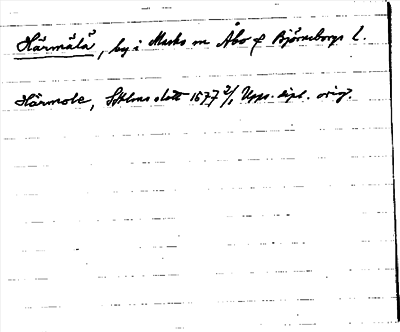 Härmälä, by i Masku sn Åbo o Björneborgs l.
Härmole, Sthlms slott 1677 2/1 Upps. dipl. orig.